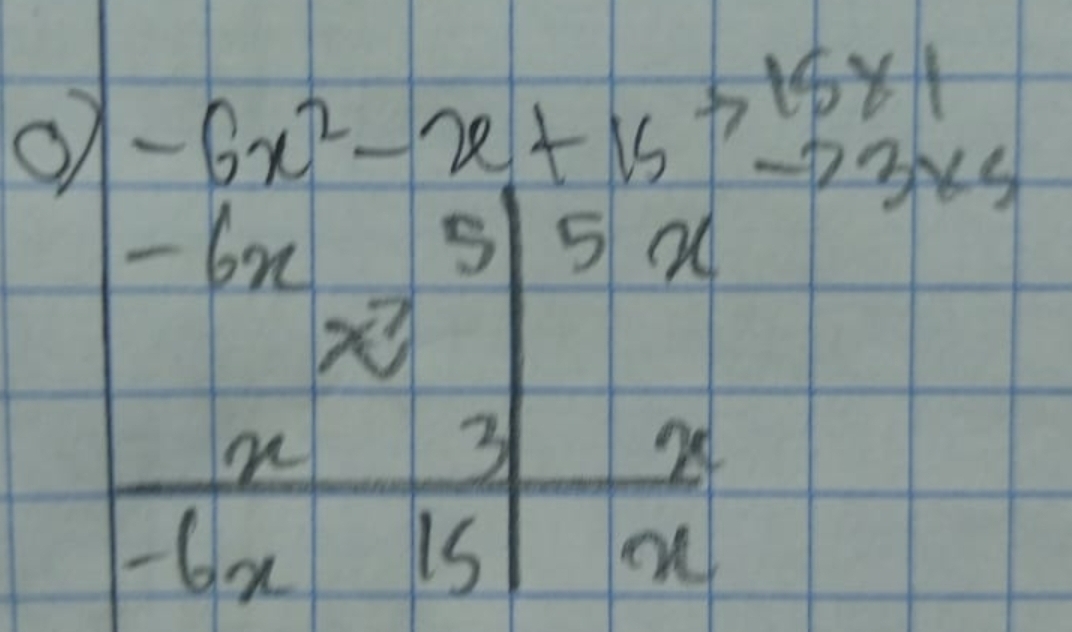 o) -6x² - x + 15 → 15 x 1
→ 3 x 5
-6x 5 | 5 x
x 3 | x
-6x 15 | x